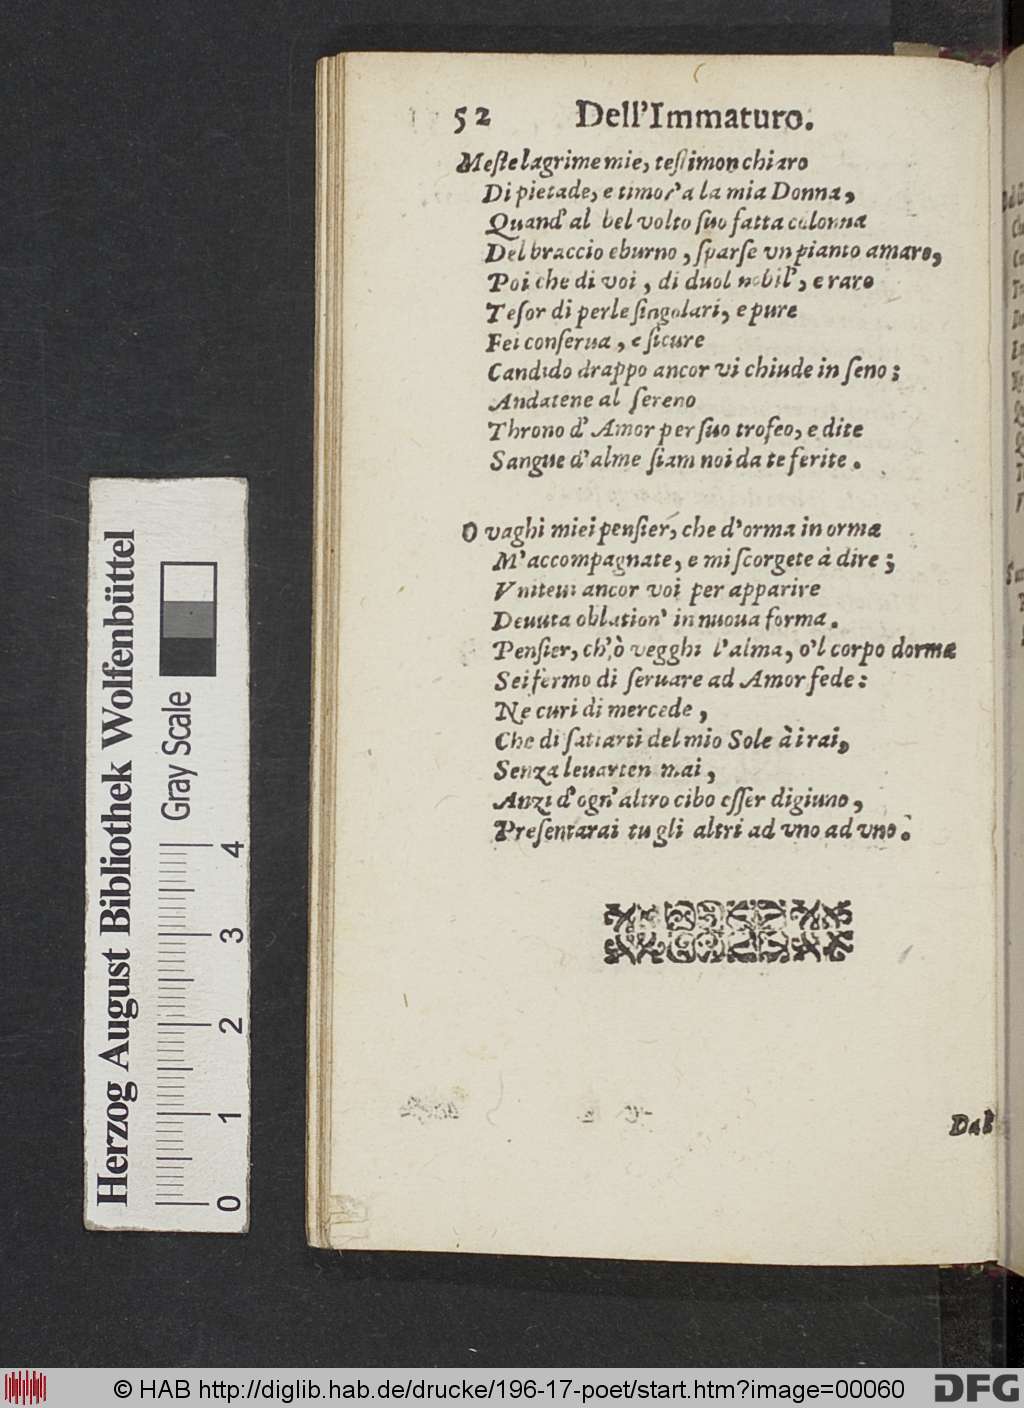 52 Dell'Immaturo.
Meſte lagrime mie, teſtimon chiaro
Di pietade, e timor' a la mia Donna,
Quand' al bel volto ſuo fatta colonna
Del braccio eburno, ſparſe vn pianto amaro,
Poi che di voi, di duol nobil', e raro
Teſor di perle ſingolari, e pure
Fei conſerua, e ſicure
Candido drappo ancor vi chiude in ſeno;
Andatene al ſereno
Throno d' Amor per ſuo trofeo, e dite
Sangue d'alme ſiam noi da te ferite.
O vaghi miei penſier, che d'orma in orma
M'accompagnate, e mi ſcorgete à dire;
Vniteui ancor voi per apparire
Deuuta oblation' in nuoua forma.
Penſier, ch'ò vegghi l'alma, o'l corpo dorma
Sei fermo di ſeruare ad Amor fede:
Ne curi di mercede,
Che di ſatiarti del mio Sole à i rai,
Senza leuarten mai,
Anzi d'ogn'altro cibo eſſer digiuno,
Preſentarai tu gli altri ad vno ad vno.
Dal
Herzog August Bibliothek Wolfenbüttel
Gray Scale
0 1 2 3 4
© HAB http://diglib.hab.de/drucke/196-17-poet/start.htm?image=00060
DFG